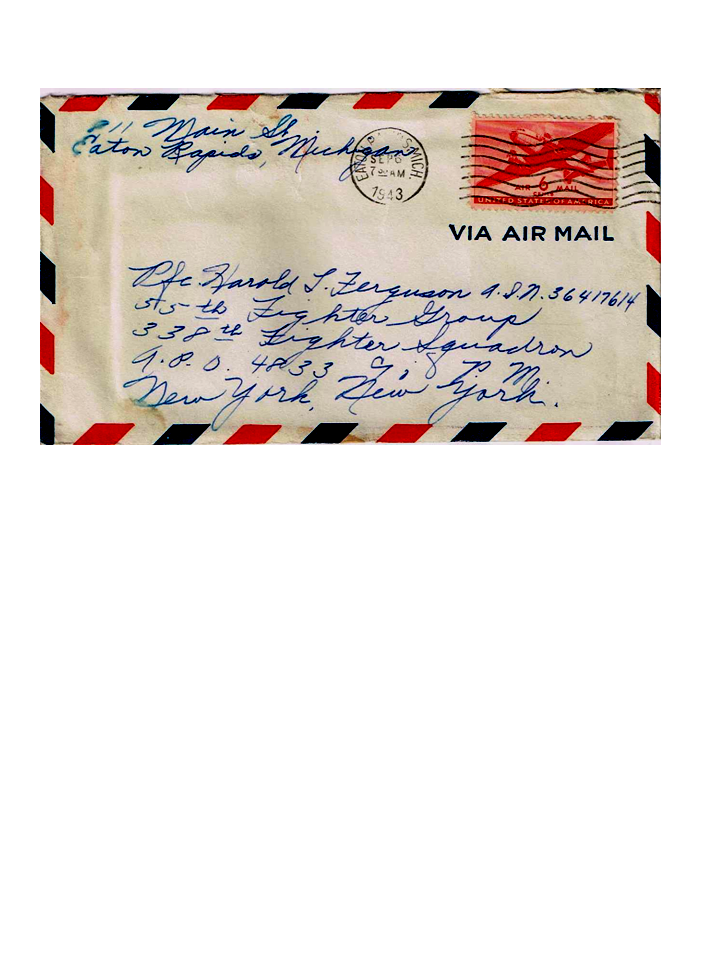 211 Main St.
Eaton Rapids, Michigan
EATON RAPIDS, MICH.
SEP 6
7 00 AM
1943
AIR 6 MAIL
CENTS
UNITED STATES OF AMERICA
VIA AIR MAIL
Pfc. Harold L. Ferguson A.S.N. 36417614
55th Fighter Group
338th Fighter Squadron
A.P.O. 4833 P.M.
New York, New York.